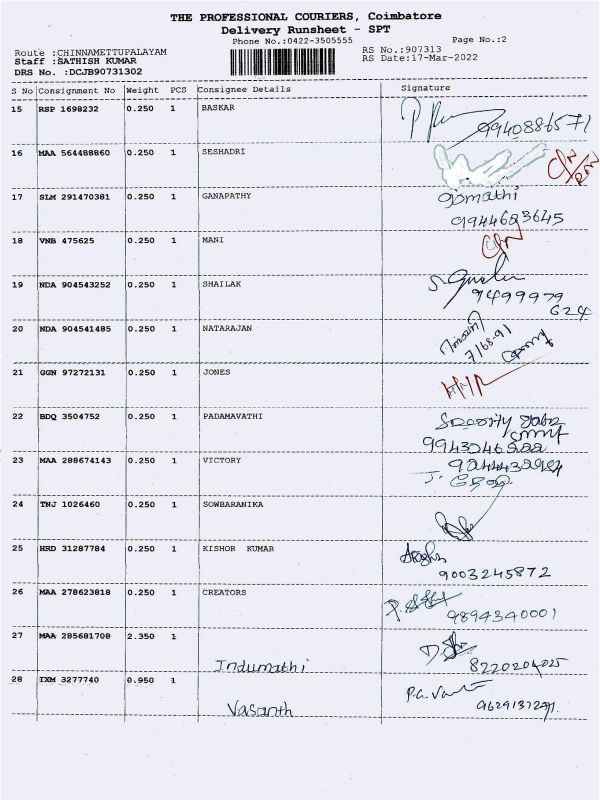 THE PROFESSIONAL COURIERS, Coimbatore
Delivery Runsheet - SPT
Phone No.:0422-3505555 Page No.:2
Route :CHINNAMETTUPALAYAM RS No.:907313
Staff :SATHISH KUMAR RS Date:17-Mar-2022
DRS No. :DCJB90731302
S No Consignment No Weight PCS Consignee Details Signature
15 RSP 1698232 0.250 1 BASKAR
9940886571
16 MAA 564488860 0.250 1 SESHADRI
17 SLM 291470381 0.250 1 GANAPATHY gomathi
9944623645
18 VNB 475625 0.250 1 MANI
19 NDA 904543252 0.250 1 SHAILAK
9499979
624
20 NDA 904541485 0.250 1 NATARAJAN
21 GGN 97272131 0.250 1 JONES
22 BDQ 3504752 0.250 1 PADAMAVATHI
23 MAA 288674143 0.250 1 VICTORY
24 TNJ 1026460 0.250 1 SOWBARANIKA
25 HRD 31287784 0.250 1 KISHOR KUMAR
9003245872
26 MAA 278623818 0.250 1 CREATORS
9894340001
27 MAA 285681708 2.350 1
Indumathi 8220204025
28 IXM 3277740 0.950 1
Vasanth